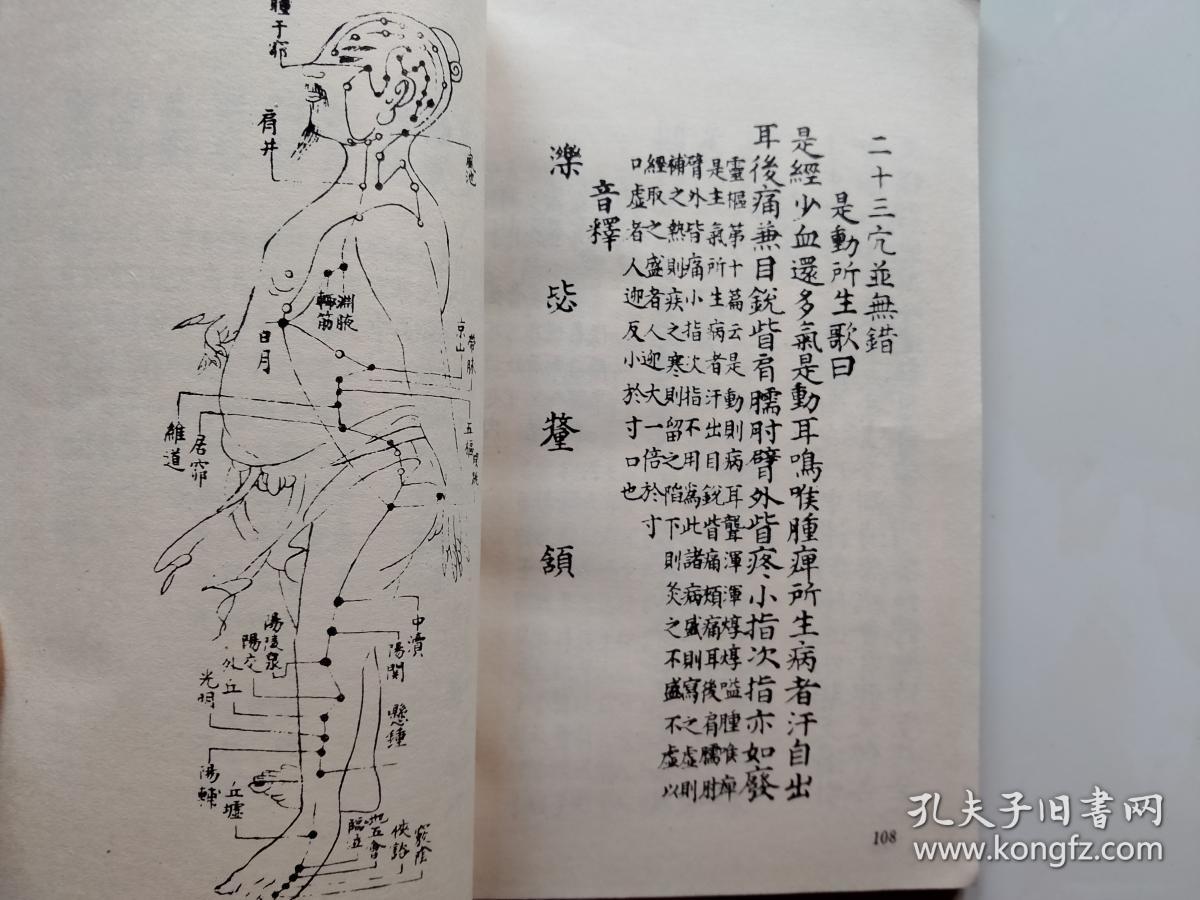 二十三穴並無錯
是動所生歌曰
是經少血還多氣是動耳鳴喉腫痺所生病者汗自出
耳後痛兼目銳眥肩臑肘臂外皆疼小指次指亦如廢
靈樞第十篇云是動則病耳聾渾渾焞焞嗌腫喉痺
是主氣所生病者汗出目銳眥痛頰痛耳後肩臑肘
臂外皆痛小指次指不用為此諸病盛則寫之虛則
補之熱則疾之寒則留之陷下則灸之不盛不虛以
經取之盛者人迎大一倍於寸
口虛者人迎反小於寸口也
音釋
濼
毖
䯒
頷
108
肩井
風池
輒筋
淵腋
日月
京山
帶脉
五樞
維道
居窌
中瀆
陽關
陽陵泉
陽交
外丘
光明
懸鍾
陽輔
丘墟
臨泣
地五會
俠谿
竅陰
孔夫子旧书网
www.kongfz.com